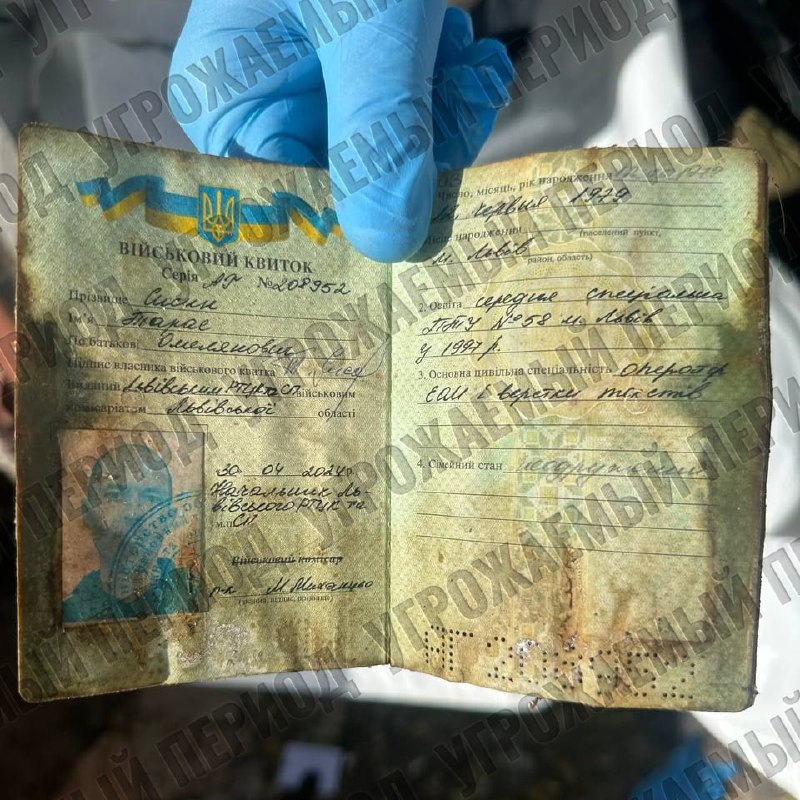 УГРОЖАЕМЫЙ ПЕРИОД
ВІЙСЬКОВИЙ КВИТОК
Серія АГ №208952
Прізвище Сисин
Ім'я Тарас
По батькові Омелянович
Підпис власника військового квитка
Виданий Львівським РТЦК та СП військовим
комісаріатом Львівської області
30 04 2024р
Начальник Ль-
вівського РТЦК та
СП
м.п.
Військовий комісар
п-к М.
(звання, підпис, прізвище)
Число, місяць, рік народження
червня 1979
Місце народження (населений пункт,
м. Львів
район, область)
2. Освіта середня спеціальна
ПТУ №58 м. Львів
у 1997 р.
3. Основна цивільна спеціальність оператор
ЕОМ і верстки текстів
4. Сімейний стан
АГ 208952